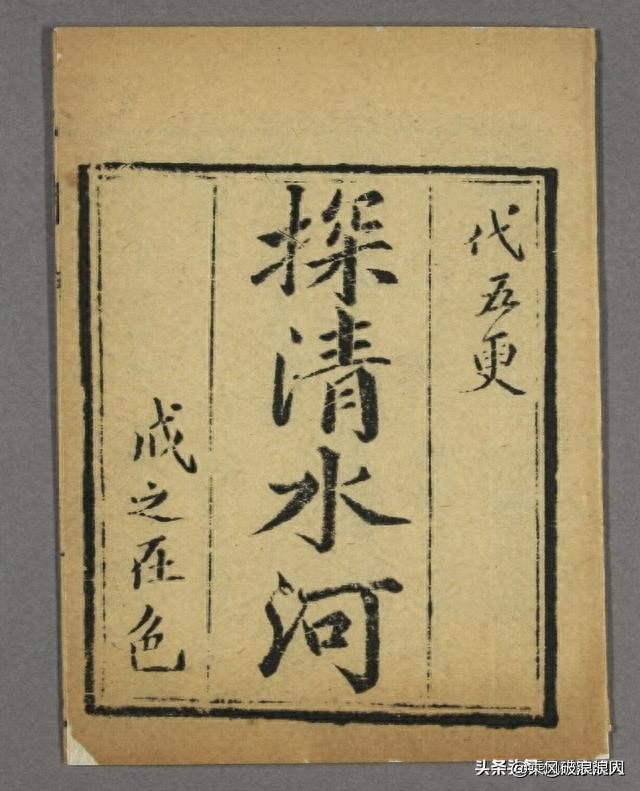 代五更
探清水河
戒之在色
头条 @乘风破浪浪人